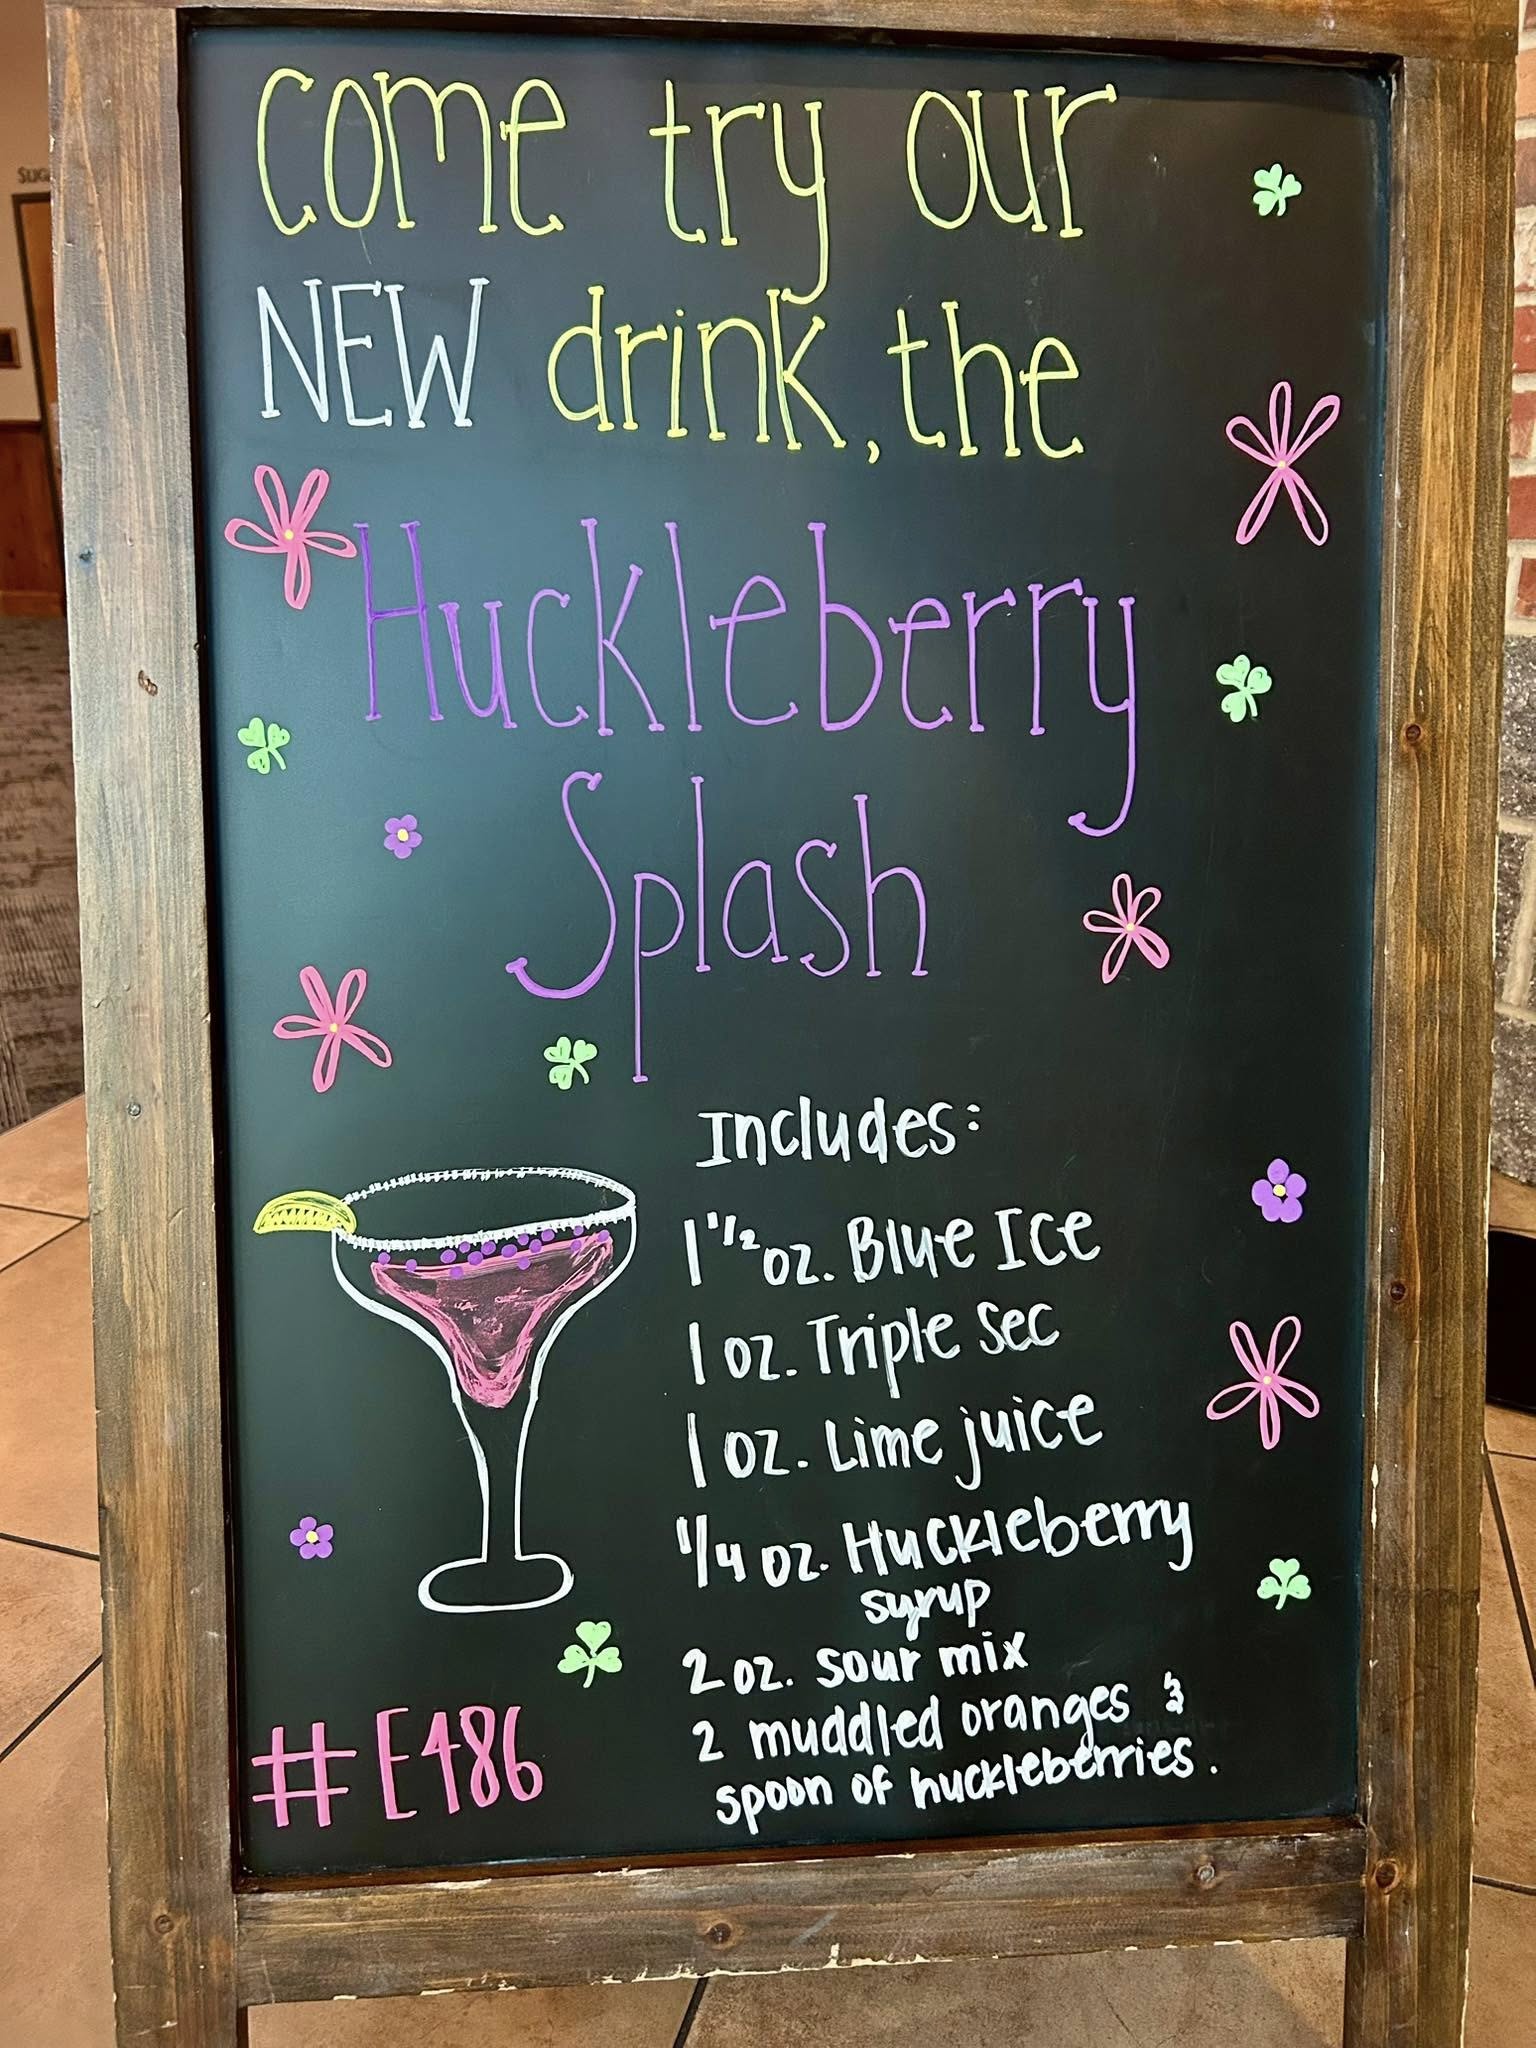 come try our
NEW drink, the
Huckleberry
Splash
Includes:
1 1/2 oz. Blue Ice
1 oz. Triple sec
1 oz. Lime juice
1/4 oz. Huckleberry
syrup
2 oz. sour mix
2 muddled oranges &
spoon of huckleberries.
#E486